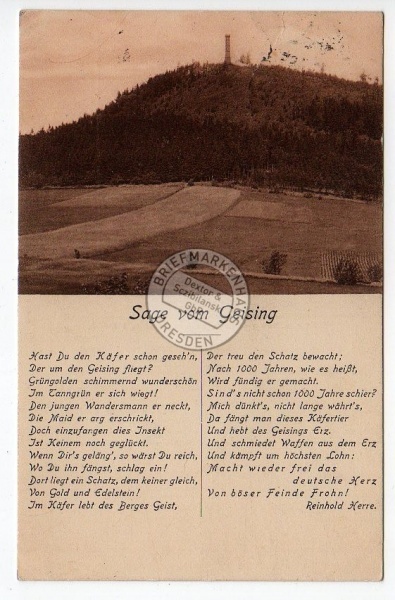 Sage vom Geising
BRIEFMARKENHAUS
Dextor &
Sczibilanski
GbR
DRESDEN
Hast Du den Käfer schon geseh'n,
Der um den Geising fliegt?
Grüngolden schimmernd wunderschön
Im Tanngrün er sich wiegt!
Den jungen Wandersmann er neckt,
Die Maid er arg erschrickt,
Doch einzufangen dies Insekt
Ist Keinem noch geglückt.
Wenn Dir's geläng', so wärst Du reich,
Wo Du ihn fängst, schlag ein!
Dort liegt ein Schatz, dem keiner gleich,
Von Gold und Edelstein!
Im Käfer lebt des Berges Geist,
Der treu den Schatz bewacht;
Nach 1000 Jahren, wie es heißt,
Wird fündig er gemacht.
Sind's nicht schon 1000 Jahre schier?
Mich dünkt's, nicht lange währt's,
Da fängt man dieses Käfertier
Und hebt des Geisings Erz.
Und schmiedet Waffen aus dem Erz
Und kämpft um höchsten Lohn:
Macht wieder frei das
deutsche Herz
Von böser Feinde Frohn!
Reinhold Herre.